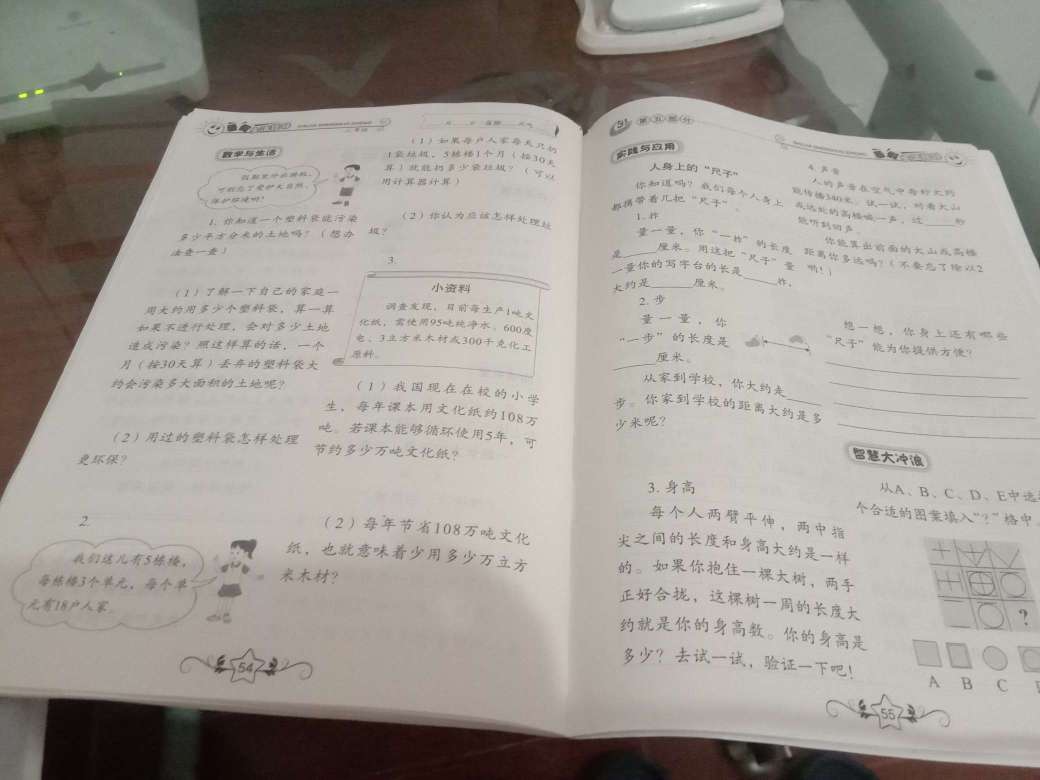 数学与生活
保护环境吗?
1. 你知道一个塑料袋能污染
多少平方分米的土地吗?(想办
法查一查)
(1)了解一下自己的家庭一
周大约用多少个塑料袋,算一算
如果不进行处理,会对多少土地
造成污染?照这样算的话,一个
月(按30天算)丢弃的塑料袋大
约会污染多大面积的土地呢?
(2)用过的塑料袋怎样处理
更环保?
2.
我们这儿有5栋楼,
每栋楼3个单元,每个单
元有18户人家。
54
(1)如果每户人家每天只扔
1袋垃圾,5栋楼1个月(按30天
算)就能扔多少袋垃圾?(可以
用计算器计算)
(2)你认为应该怎样处理垃
圾?
3.
小资料
调查发现,目前每生产1吨文
化纸,需使用95吨纯净水、600度
电、3立方米木材或300千克化工
原料。
(1)我国现在在校的小学
生,每年课本用文化纸约108万
吨。若课本能够循环使用5年,可
节约多少万吨文化纸?
(2)每年节省108万吨文化
纸,也就意味着少用多少万立方
米木材?
第五部分
实践与应用
人身上的“尺子”
你知道吗?我们每个人身上
都携带着几把“尺子”。
1. 拃
量一量,你“一拃”的长度
是____厘米。用这把“尺子”量
一量你的写字台的长是____拃,
大约是____厘米。
2. 步
量一量,你
“一步”的长度是
____厘米。
从家到学校,你大约走____
步。你家到学校的距离大约是多
少米呢?
3. 身高
每个人两臂平伸,两中指
尖之间的长度和身高大约是一样
的。如果你抱住一棵大树,两手
正好合拢,这棵树一周的长度大
约就是你的身高数。你的身高是
多少?去试一试,验证一下吧!
4. 声音
人的声音在空气中每秒大约
能传播340米。试一试,对着大山
或远处的高楼喊一声,过____秒
能听到回声。
你能算出前面的大山或高楼
距离你多远吗?(不要忘了除以2
哟!)
想一想,你身上还有哪些
“尺子”能为你提供方便?
智慧大冲浪
从A、B、C、D、E中选
个合适的图案填入“?”格中。
?
A B C
55